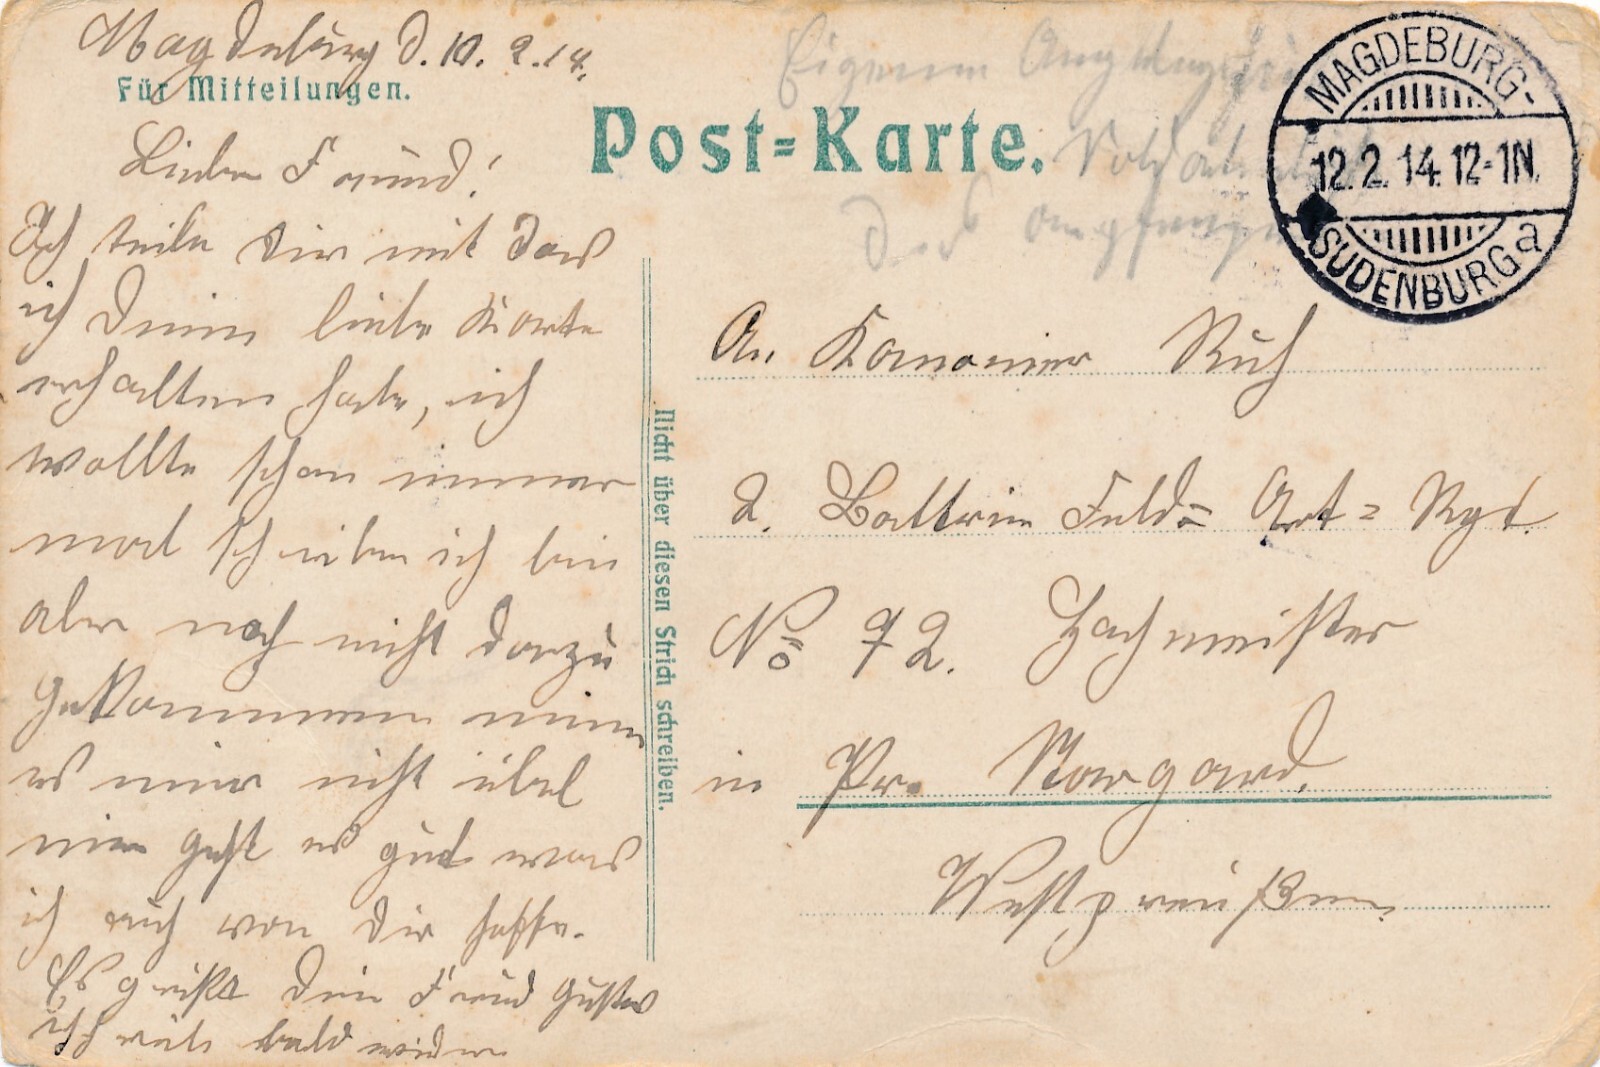 Magdeburg d. 10. 2. 14.
Für Mitteilungen.
Lieber Freund!
Ich teile Dir mit das
ich Deine liebe Karte
erhalten habe, ich
wollte schon immer
mal schreiben ich bin
aber noch nicht dazu
gekommen
es mir nicht übel
mir geht es gut was
ich auch von Dir hoffe.
Es grüßt Dein Freund Gustav
bald wieder
Nicht über diesen Strich schreiben.
Eigenen Angelegenheit
Soldaten
des Empfängers
Post=Karte.
MAGDEBURG-
12.2.14.12-1N.
SUDENBURG a
An Kanonier Ruh
2. Batterie Feld= Art= Rgt.
No 72. Hachmeister
in Pr. Stargard.
Westpreußen.